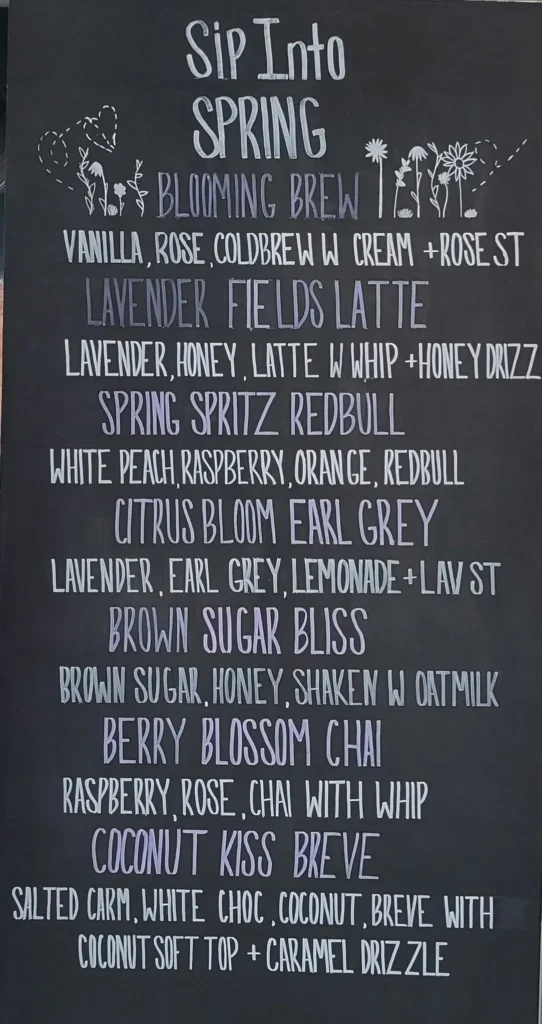 Sip Into
SPRING
BLOOMING BREW
VANILLA, ROSE, COLDBREW W CREAM + ROSE ST
LAVENDER FIELDS LATTE
LAVENDER, HONEY, LATTE W WHIP + HONEY DRIZZ
SPRING SPRITZ REDBULL
WHITE PEACH, RASPBERRY, ORANGE, REDBULL
CITRUS BLOOM EARL GREY
LAVENDER, EARL GREY, LEMONADE + LAV ST
BROWN SUGAR BLISS
BROWN SUGAR, HONEY, SHAKEN W OATMILK
BERRY BLOSSOM CHAI
RASPBERRY, ROSE, CHAI WITH WHIP
COCONUT KISS BREVE
SALTED CARM, WHITE CHOC, COCONUT, BREVE WITH
COCONUT SOFT TOP + CARAMEL DRIZZLE